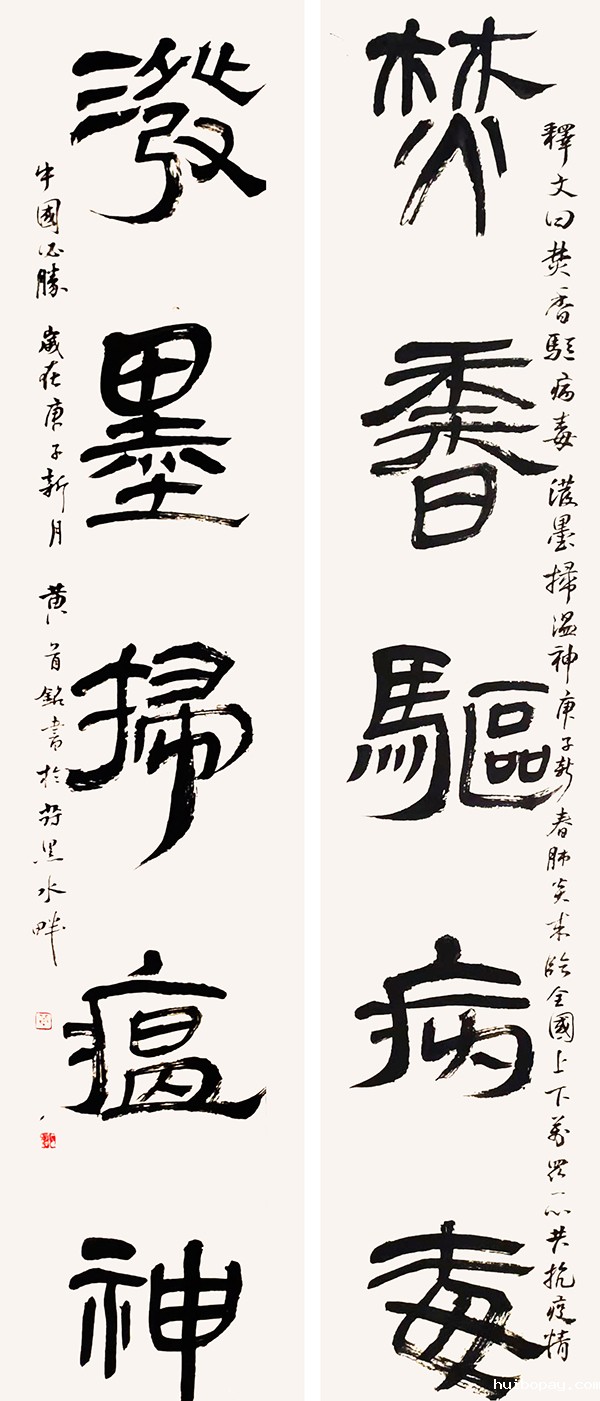 焚香驅病毒
釋文曰焚香驅病毒潑墨掃温神庚子新春肺炎来臨全國上下萬眾一心共抗疫情
潑墨掃瘟神
中國必勝 歲在庚子新月 黄首銘書於
黑水畔
huibopay.com